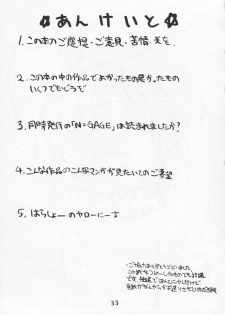 ☆あんけいと☆
1. この本のご感想・ご意見・苦情・etc.
2. この本の中の作品でよかったもの悪かったもの
いくつでもどうぞ
3. 同時発行の「N=GAGE」は読まれましたか?
4. こんな作品のこんなマンガが見たいてのご希望
5. はらしょーのヤローに一言
・ご協力ありがとうございました。
33